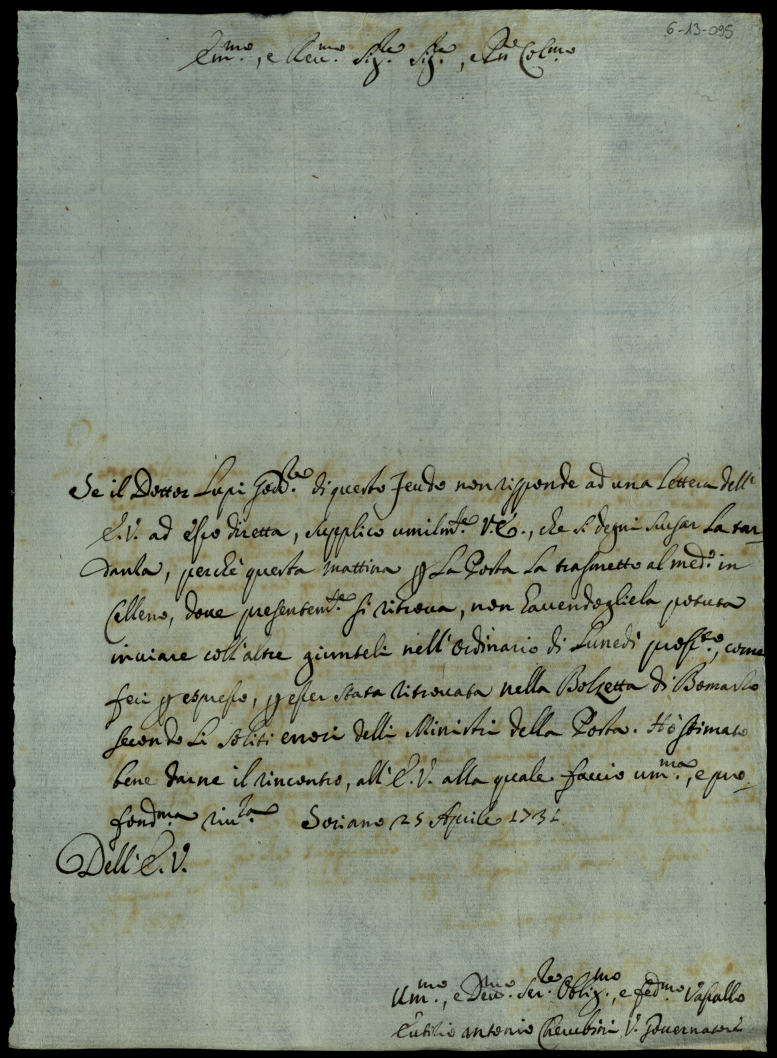 6-13-095
Em.mo, e Reu.mo Sig.re Sig.re, e Pñ Col.mo
Se il Dottor Lupi Gou.re di questo Feudo non risponde ad una Lettera dell'
E.V. ad esso diretta, supplico umilm.te V.E., che si degni scusar la tar-
danza, perchè questa mattina p La Posta La trasmetto al med.o in
Celleno, doue presentem.te si ritroua, non hauendogliela potuta
inuiare coll'altre giunteli nell'ordinario di Lunedi pross.o, come
feci p espresso, p esser stata ritrouata nella Bolzetta di Bomarzo
secondo li soliti errori delli Ministri della Posta. Hò stimato
bene darne il rincontro, all'E.V. alla quale faccio um.ma, e pro-
fond.ma riu.za Soriano 25 Aprile 1731
Dell'E.V.
Um.mo, e Deu.mo Ser.re Oblig.mo, e fed.mo Vassallo
Rutilio Antonio Cherubini V. Gouernatore